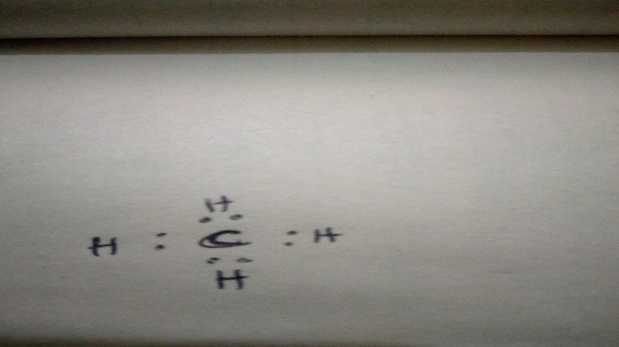 H
H : C : H
H